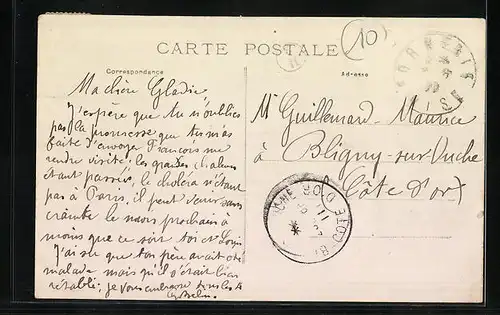 CARTE POSTALE
(10)
Correspondance
Adresse
Ma chère Gladie
J'espère que tu n'oublies
pas la promesse que tu m'as
faite d'envoyer François me
rendre visite, les grandes chaleurs
étant passées, le choléra n'étant
pas à Paris, il peut venir sans
crainte le mois prochain à
moins que ce soit toi et Louis
J'ai su que ton père avait été
malade mais qu'il était bien
rétabli; je vous embrasse tous les
Mr Guillemard Maurice
à Bligny-sur-Ouche
Côte d'or
COTE D'OR